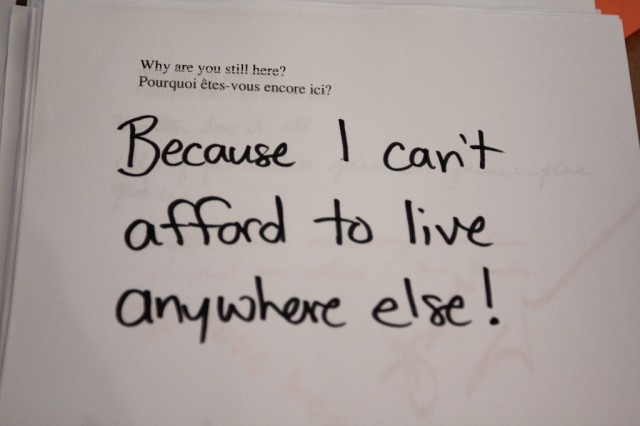 Why are you still here?
Pourquoi êtes-vous encore ici?
Because I can't
afford to live
anywhere else!